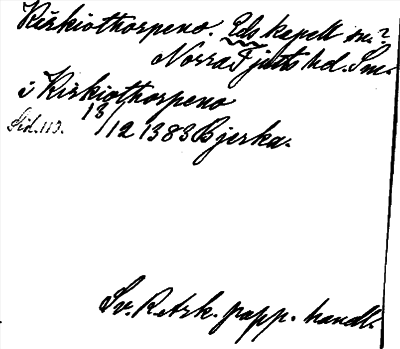 Kirkiothorpeno. Eds kapell sn.?
Norra Tjusts hd. Sm.
i Kirkiothorpeno
13/12 1383 Bjerka.
Sid. 113.
Sv. R. Ark. papp. handl.